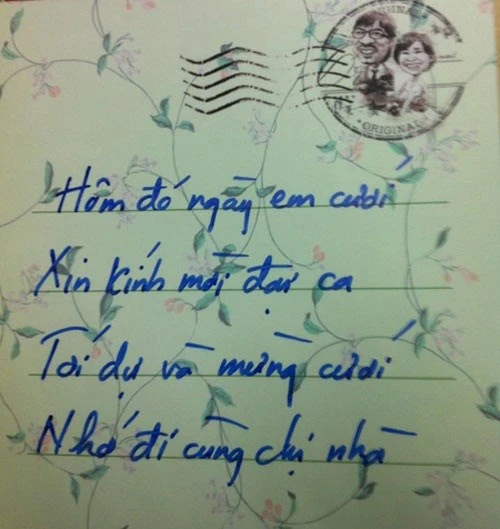 ORIGINAL
Hôm đó ngày em cưới
Xin kính mời đại ca
Tới dự và mừng cưới
Nhớ đi cùng chị nhà